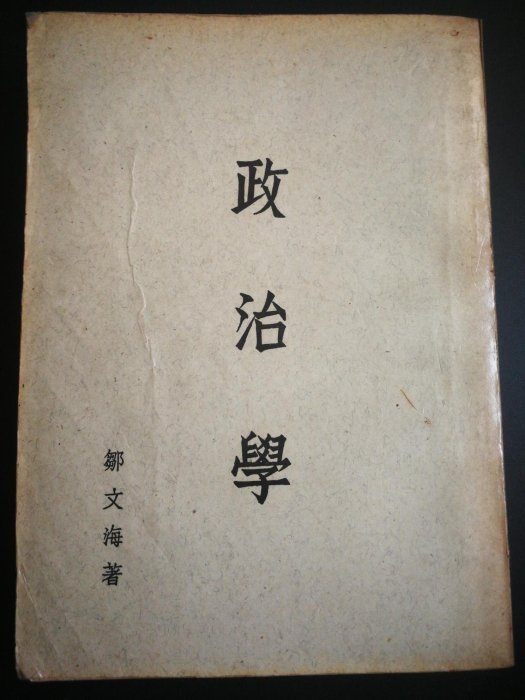 政治學
鄒文海著